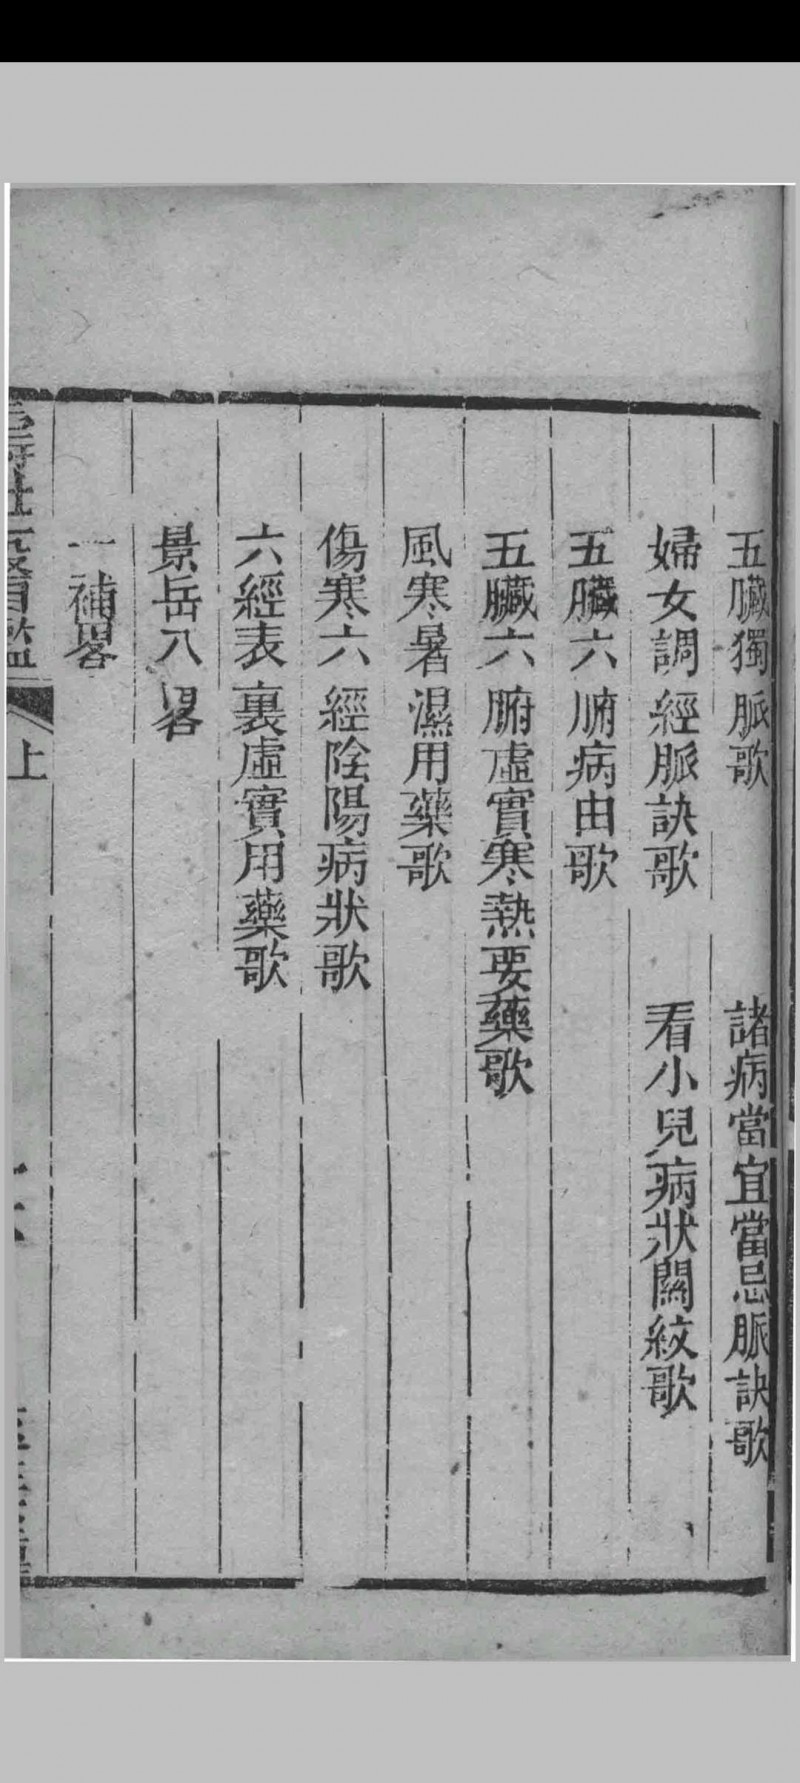 五臟獨脈歌　諸病當宜當忌脈訣歌
婦女調經脈訣歌　看小兒病狀關紋歌
五臟六腑病由歌
五臟六腑虛實寒熱要藥歌
風寒暑濕用藥歌
傷寒六經陰陽病狀歌
六經表裏虛實用藥歌
景岳八畧
一補畧
上